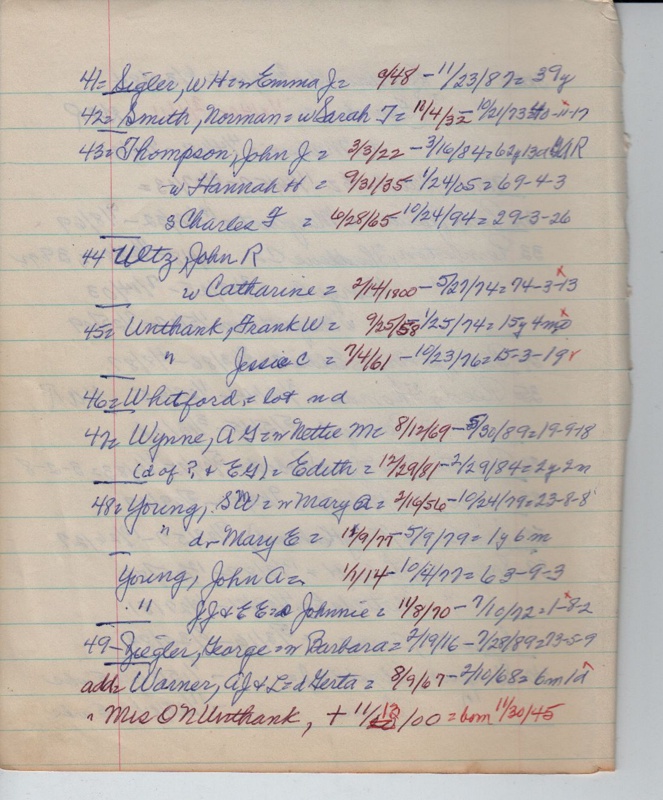 41= Sigler, W H = w Emma J = 9/48 - 11/23/87 = 39y
42= Smith, Norman = w Sarah J = 11/4/32 - 10/21/73 = 40-11-17
43= Thompson, John J = 3/3/22 - 3/16/84 = 62y 13d GAR
w Hannah H = 9/31/35 - 1/24/05 = 69-4-3
s Charles F = 6/28/65 - 10/24/94 = 29-3-26
44 Ultz, John R
w Catharine = 2/14/1800 - 5/27/74 = 74-3-13
45= Unthank, Frank W = 9/25/58 - 1/25/74 = 15y 4mo
" Jessie C = 7/4/61 - 10/23/76 = 15-3-19
46= Whitford, = lot nd
47= Wynne, A G = w Nettie M = 8/12/69 - 5/30/89 = 19-9-18
(d of ?, & E G) = Edith = 12/29/81 - 2/29/84 = 2y 2m
48= Young, S W = w Mary A = 2/16/56 - 10/24/79 = 23-8-8
" d - Mary E = 11/9/77 - 5/9/79 = 1y 6m
Young, John A = 1/1/14 - 10/4/77 = 63-9-3
" J J & E E = Johnnie = 11/8/70 - 7/10/72 = 1-8-2
49- Ziegler, George = w Barbara = 2/19/16 - 7/28/89 = 73-5-9
add= Warner, A J & L = d Gerta = 8/9/67 - 2/10/68 = 6m 1d
" Mrs O N Unthank, + 11/13/00 = born 11/30/45